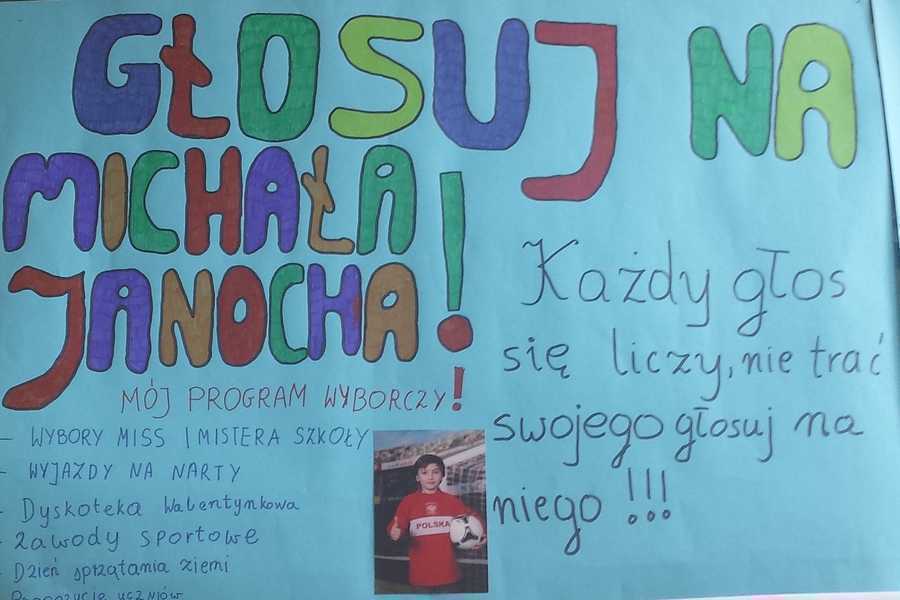 GŁOSUJ NA
MICHAŁA
JANOCHA!
MÓJ PROGRAM WYBORCZY!
- WYBORY MISS I MISTERA SZKOŁY
- WYJAZDY NA NARTY
- Dyskoteka Walentynkowa
- Zawody sportowe
- Dzień sprzątania ziemi
- Propozycje uczniów
POLSKA
Każdy głos
się liczy, nie trać
swojego głosuj na
niego !!!